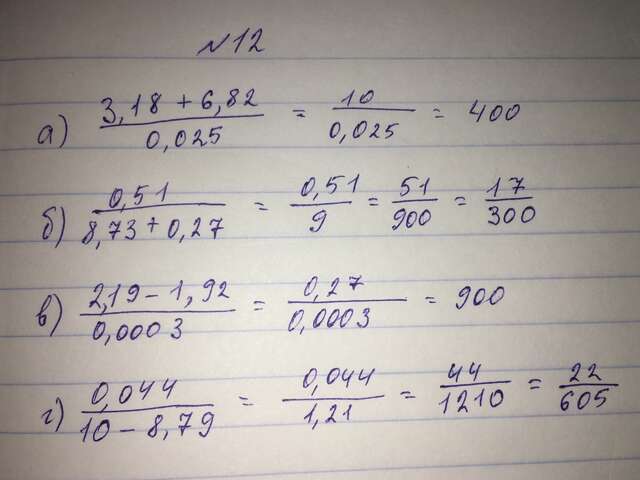 №12
а) (3,18 + 6,82)/0,025 = 10/0,025 = 400
б) 0,51/(8,73 + 0,27) = 0,51/9 = 51/900 = 17/300
в) (2,19 - 1,92)/0,0003 = 0,27/0,0003 = 900
г) 0,044/(10 - 8,79) = 0,044/1,21 = 44/1210 = 22/605